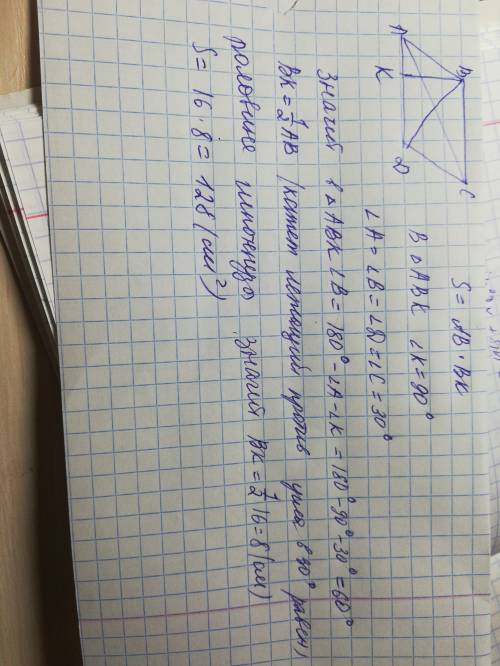 A
B
K
D
C
S = AB · BK
В △ ABK ∠K = 90°
∠A = ∠B = ∠D = ∠C = 30°
Значит в △ ABK ∠B = 180° - ∠A - ∠K = 180° - 90° - 30° = 60°
BK = 1/2 AB (катет лежащий против угла в 30° равен
половине гипотенузы, значит BK = 1/2 16 = 8 (см)
S = 16 · 8 = 128 (см²)